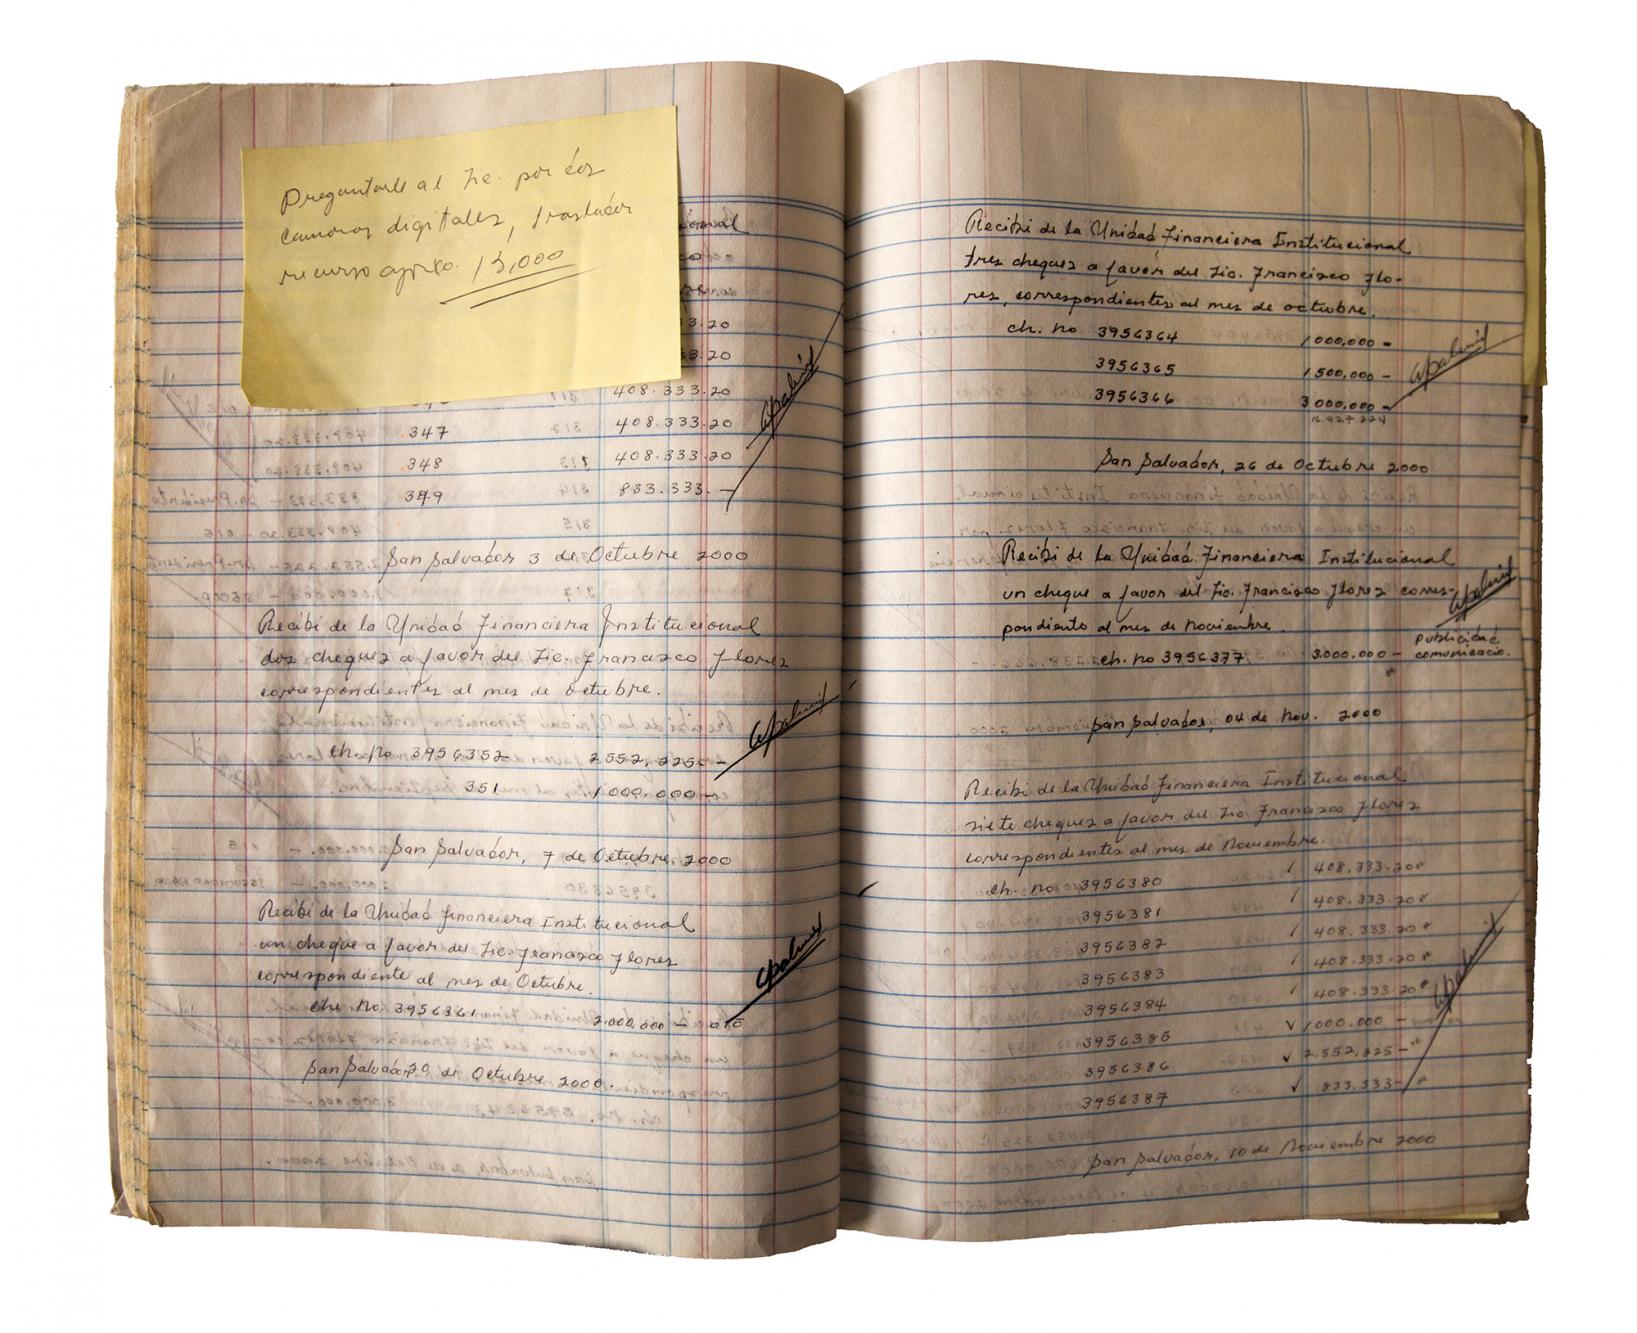 Preguntarle al Lic. por dos
camaras digitales, trasladar
recurso aprox. 13,000
3.20
408.333.20
347 408.333.20
348 408.333.20
349 833.333.-
San Salvador 3 de Octubre 2000
Recibi de la Unidad Financiera Institucional
dos cheques a favor del Lic. Francisco Flores
correspondientes al mes de octubre.
ch. no 3956352 2552,225-
351 1000.000-
San Salvador, 7 de Octubre, 2000
Recibi de la Unidad Financiera Institucional
un cheque a favor del Lic. Francisco Flores
correspondiente al mes de Octubre.
che No. 3956361 2.000,000 -
San Salvador 20 de Octubre 2000.
Recibi de la Unidad Financiera Institucional
tres cheques a favor del Lic. Francisco Flo-
res, correspondientes al mes de octubre.
ch. no 3956364 1000,000 -
3956365 1500,000 -
3956366 3000,000 -
San Salvador, 26 de Octubre 2000
Recibi de la Unidad Financiera Institucional
un cheque a favor del Lic. Francisco Flores corres-
pondiente al mes de Noviembre.
ch. no 3956377 3.000.000 - publicidad
comunicacio.
San Salvador, 04 de Nov. 2000
Recibi de la Unidad Financiera Institucional
siete cheques a favor del Lic. Francisco Flores
correspondientes al mes de Noviembre.
ch. no. 3956380 408.333.20
3956381 408.333.20
3956382 408.333.20
3956383 408.333.20
3956384 408.333.20
3956385 1000.000 -
3956386 2.552,225 -
3956387 833,333 -
San Salvador, 10 de Noviembre 2000